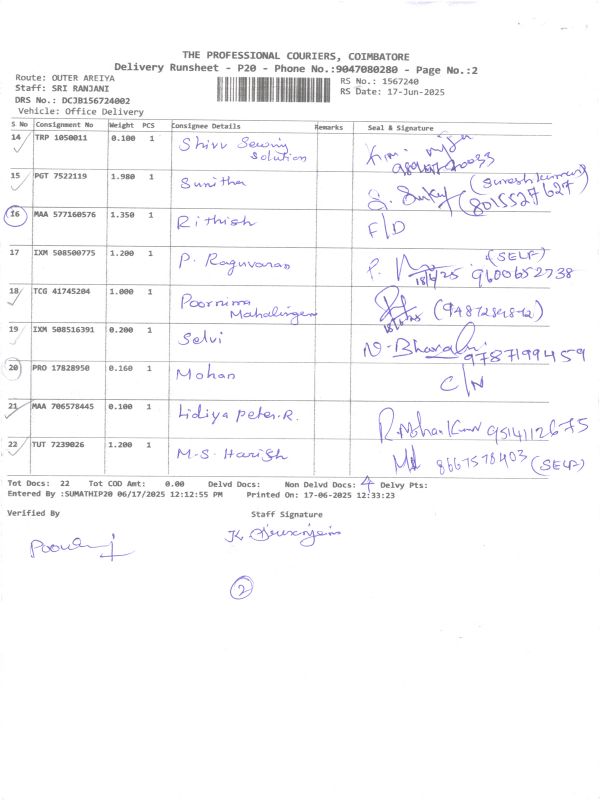 THE PROFESSIONAL COURIERS, COIMBATORE
Delivery Runsheet - P20 - Phone No.:9047080280 - Page No.:2
Route: OUTER AREIYA
RS No.: 1567240
Staff: SRI RANJANI
RS Date: 17-Jun-2025
DRS No.: DCJB156724002
Vehicle: Office Delivery
S No Consignment No Weight PCS Consignee Details Remarks Seal & Signature
14 TRP 1050011 0.100 1 Shivv Sewing Solution
15 PGT 7522119 1.980 1 Sunitha (Sureshkumar) 8015527627
16 MAA 577160576 1.350 1 Rithish F/D
17 IXM 508500775 1.200 1 P. Raguvaran (SELF) 9600652738
18 TCG 41745204 1.000 1 Poornima Mahalingam
19 IXM 508516391 0.200 1 Selvi N-Bharathi 9787199459
20 PRO 17828950 0.160 1 Mohan C/N
21 MAA 706578445 0.100 1 Lidiya peter.R. R.Mohan Kumar 9514112675
22 TUT 7239026 1.200 1 M.S. Harish 8667578403 (SELF)
Tot Docs: 22 Tot COD Amt: 0.00 Delvd Docs: Non Delvd Docs: 4 Delvy Pts:
Entered By :SUMATHIP20 06/17/2025 12:12:55 PM Printed On: 17-06-2025 12:33:23
Verified By Staff Signature
2